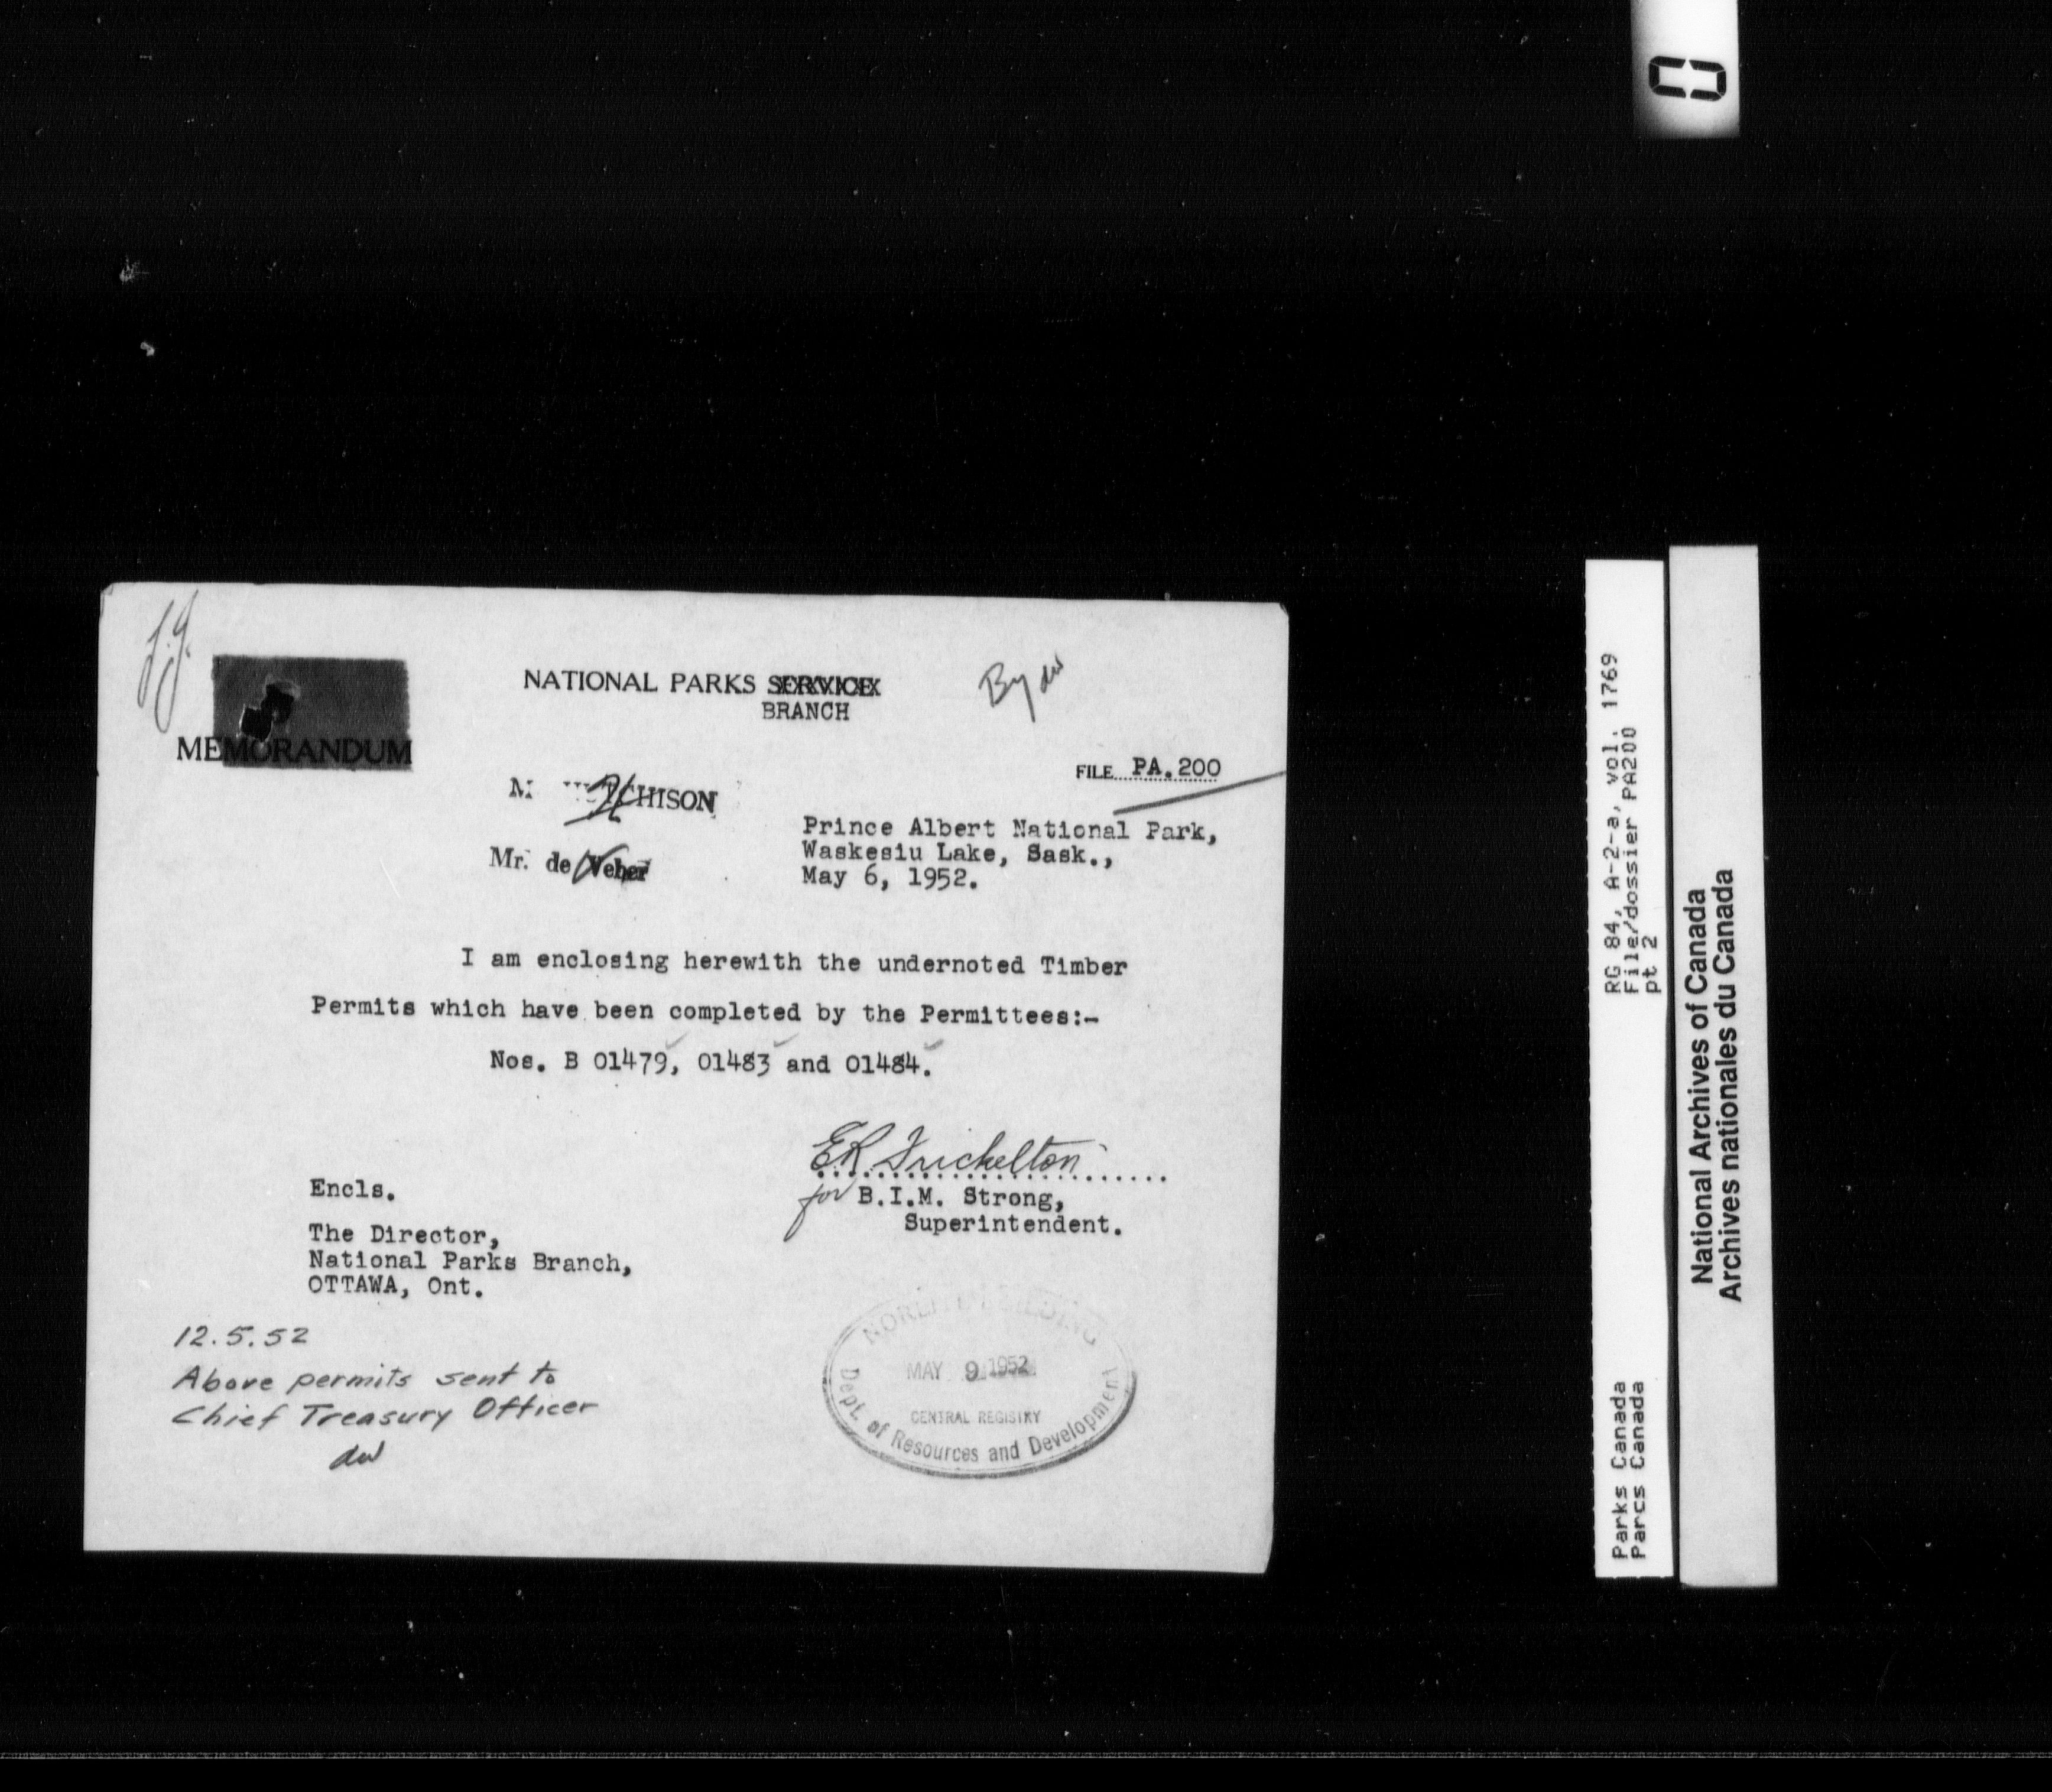 By dw
NATIONAL PARKS SERVICE
BRANCH
MEMORANDUM
FILE PA.200
HISON
Mr. de Veber
Prince Albert National Park,
Waskesiu Lake, Sask.,
May 6, 1952.
I am enclosing herewith the undernoted Timber
Permits which have been completed by the Permittees:-
Nos. B 01479, 01483 and 01484.
ER Frickelton
for B.I.M. Strong,
Superintendent.
Encls.
The Director,
National Parks Branch,
OTTAWA, Ont.
12.5.52
Above permits sent to
Chief Treasury Officer
dw
MAY 9 1952
CENTRAL REGISTRY
Dept. of Resources and Development
RG 84, A-2-a, vol. 1769
File/dossier PA200
pt 2
Parks Canada
Parcs Canada
National Archives of Canada
Archives nationales du Canada